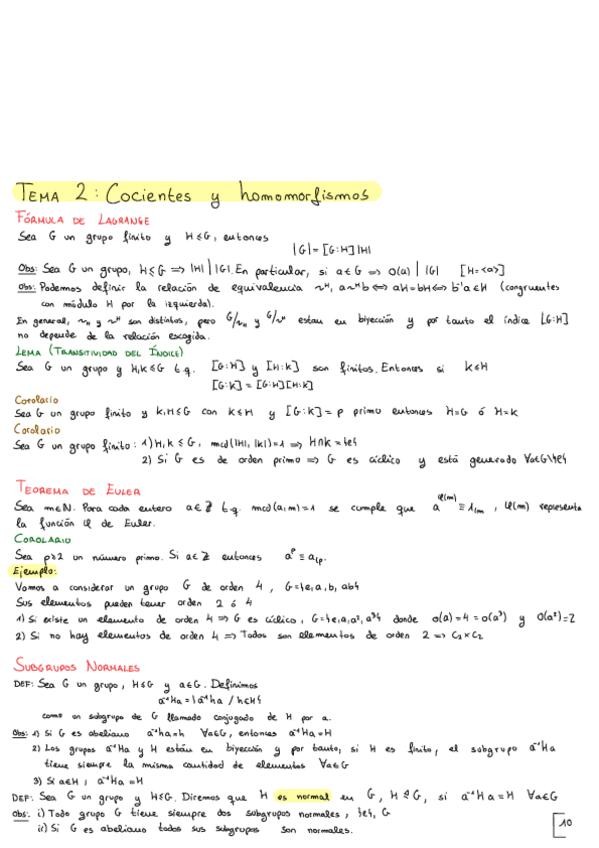 TEMA 2: Cocientes y homomorfismos
FÓRMULA DE LAGRANGE
Sea G un grupo finito y H≤G, entonces
|G| = [G:H]|H|
Obs: Sea G un grupo, H≤G ⟹ |H| | |G|. En particular, si a∈G ⟹ o(a) | |G| [H=<a>]
Obs: Podemos definir la relación de equivalencia ~ᴴ, a~ᴴb ⟺ aH=bH ⟺ b⁻¹a∈H (congruentes
con módulo H por la izquierda).
En general, ~ₕ y ~ᴴ son distintos, pero G/~ₕ y G/~ᴴ estan en biyección y por tanto el índice [G:H]
no depende de la relación escogida.
LEMA (TRANSITIVIDAD DEL ÍNDICE)
Sea G un grupo y H,K≤G t.q. [G:H] y [H:K] son finitos. Entonces si K≤H
[G:K] = [G:H][H:K]
Corolario
Sea G un grupo finito y K,H≤G con K≤H y [G:K] = p primo entonces H=G ó H=K
Corolario
Sea G un grupo finito: 1) H,K ≤ G, mcd(|H|,|K|)=1 ⟹ H∩K = {e}
2) Si G es de orden primo ⟹ G es cíclico y está generado ∀a∈G\{e}
TEOREMA DE EULER
Sea m∈N. Para cada entero a∈Z t.q. mcd(a,m)=1 se cumple que a^φ(m) ≡ 1₍ₘ , φ(m) representa
la función φ de Euler.
COROLARIO
Sea p≥2 un número primo. Si a∈Z entonces aᵖ ≡ a₍ₚ.
Ejemplo:
Vamos a considerar un grupo G de orden 4, G={e,a,b,ab}
Sus elementos pueden tener orden 2 ó 4
1) Si existe un elemento de orden 4 ⟹ G es cíclico, G={e,a,a²,a³} donde o(a)=4=o(a³) y o(a²)=2
2) Si no hay elementos de orden 4 ⟹ Todos son elementos de orden 2 ⟹ C₂×C₂
SUBGRUPOS NORMALES
DEF: Sea G un grupo, H≤G y a∈G. Definimos
a⁻¹Ha = {a⁻¹ha / h∈H}
como un subgrupo de G llamado conjugado de H por a.
Obs: 1) Si G es abeliano a⁻¹ha=h ∀a∈G, entonces a⁻¹Ha=H
2) Los grupos a⁻¹Ha y H están en biyección y por tanto, si H es finito, el subgrupo a⁻¹Ha
tiene siempre la misma cantidad de elementos ∀a∈G
3) Si a∈H, a⁻¹Ha=H
DEF: Sea G un grupo y H≤G. Diremos que H es normal en G, H⊴G, si a⁻¹Ha=H ∀a∈G
Obs: i) Todo grupo G tiene siempre dos subgrupos normales, {e}, G
ii) Si G es abeliano todos sus subgrupos son normales.
10